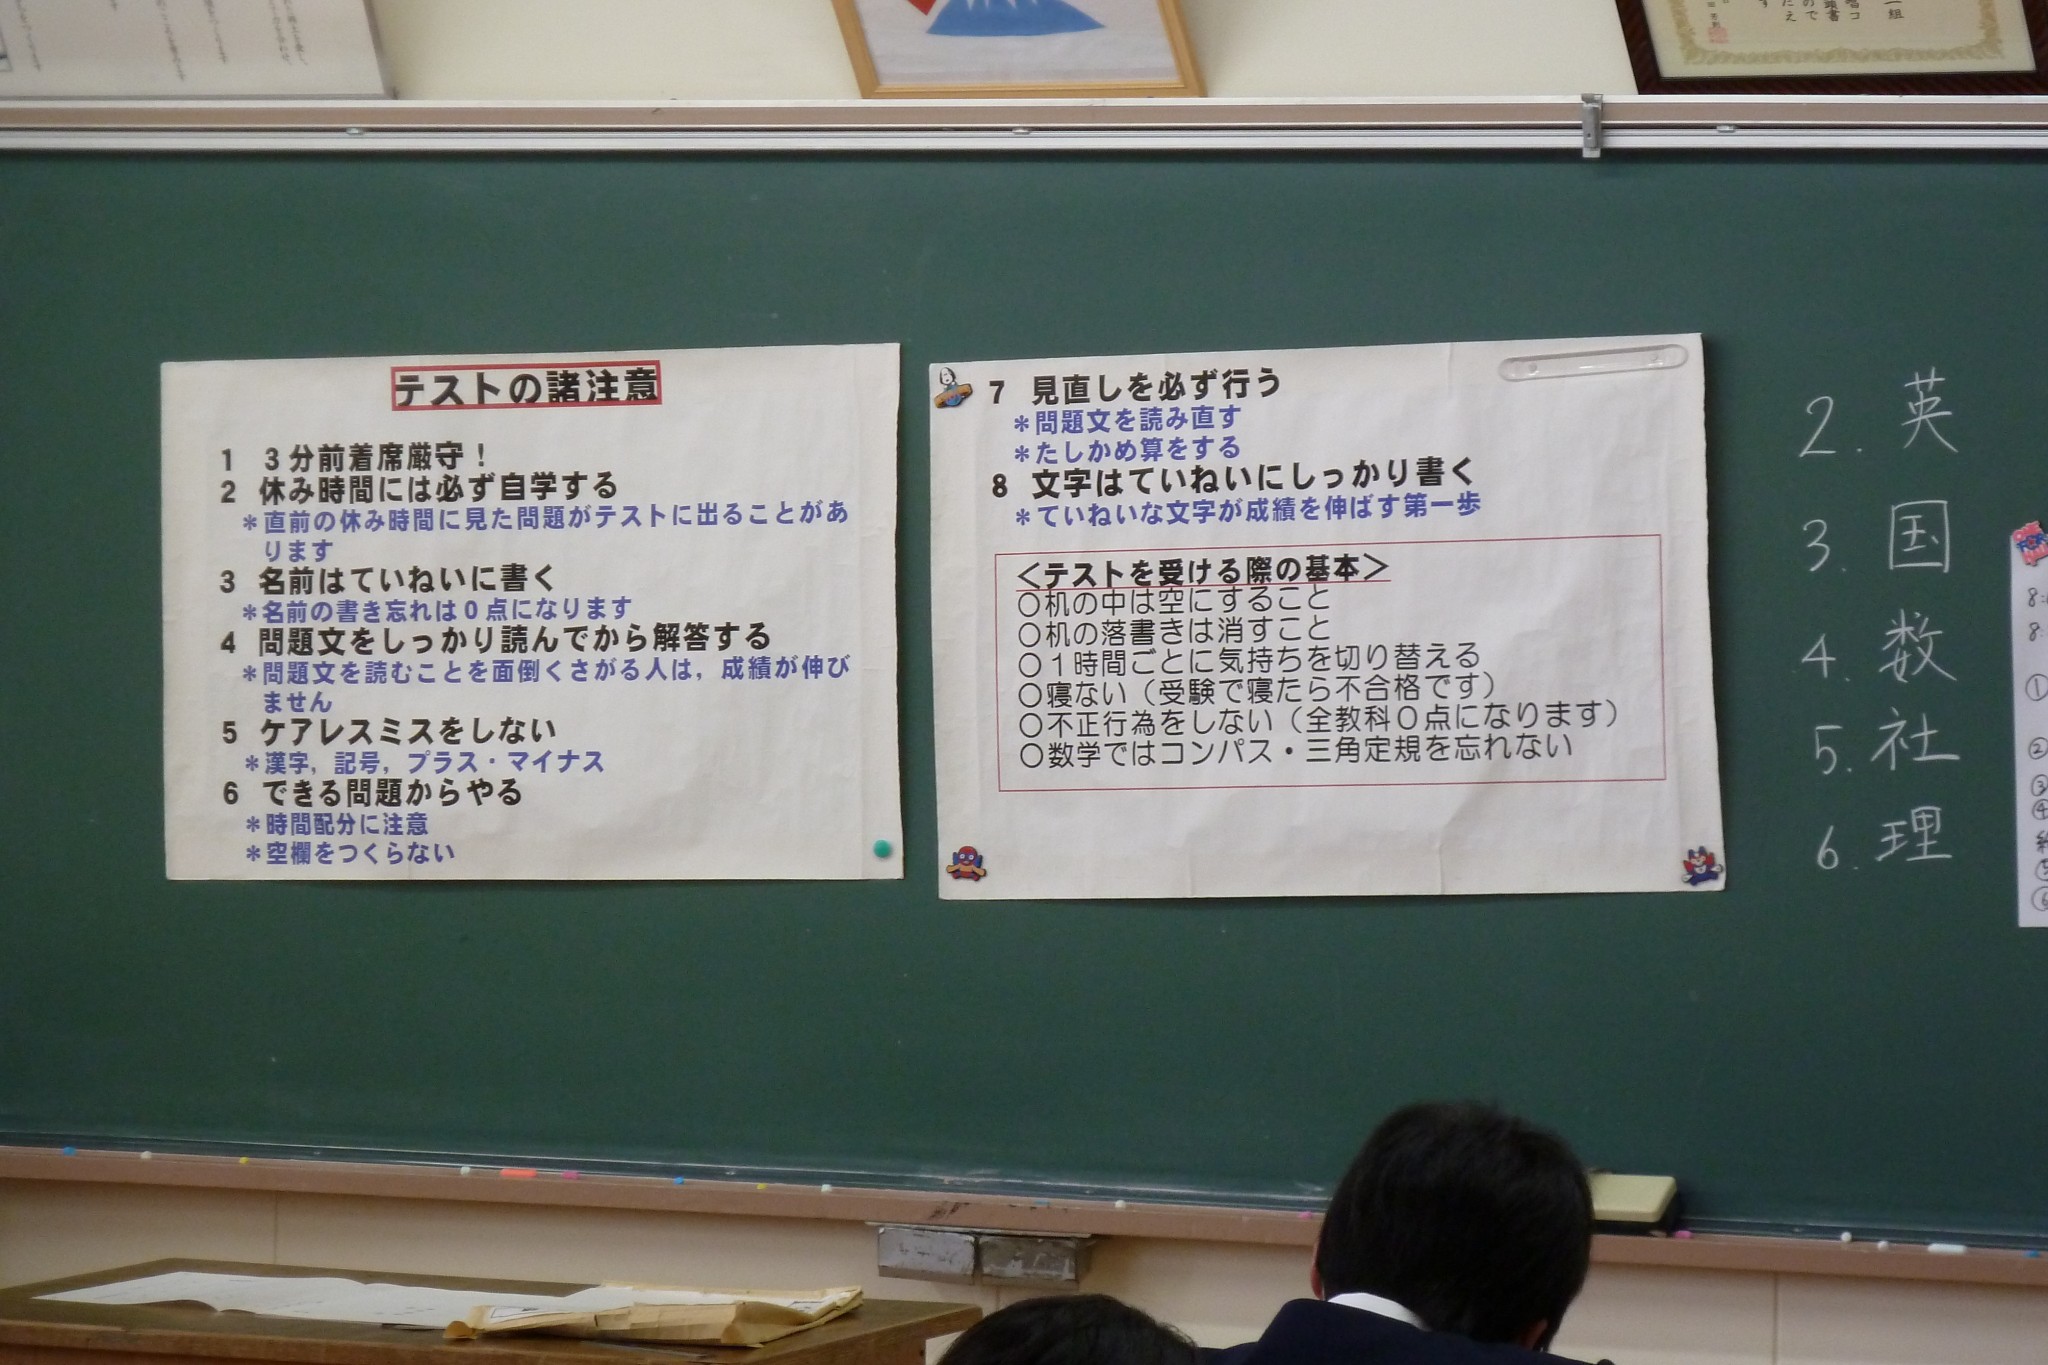 テストの諸注意
1 3分前着席厳守！
2 休み時間には必ず自学する
＊直前の休み時間に見た問題がテストに出ることがあ
ります
3 名前はていねいに書く
＊名前の書き忘れは0点になります
4 問題文をしっかり読んでから解答する
＊問題文を読むことを面倒くさがる人は，成績が伸び
ません
5 ケアレスミスをしない
＊漢字，記号，プラス・マイナス
6 できる問題からやる
＊時間配分に注意
＊空欄をつくらない
7 見直しを必ず行う
＊問題文を読み直す
＊たしかめ算をする
8 文字はていねいにしっかり書く
＊ていねいな文字が成績を伸ばす第一歩
＜テストを受ける際の基本＞
○机の中は空にすること
○机の落書きは消すこと
○1時間ごとに気持ちを切り替える
○寝ない（受験で寝たら不合格です）
○不正行為をしない（全教科0点になります）
○数学ではコンパス・三角定規を忘れない
2. 英
3. 国
4. 数
5. 社
6. 理
8:
8:
①
②
③
④
⑤
⑥